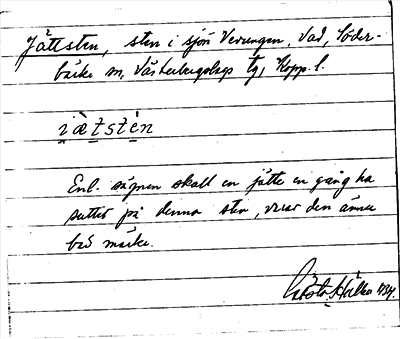 Jättsten, sten i sjön Verungen, Vad, Söder-
bärke sn, Västerbergslags tg, Kopp. l.
i̯æ̀tstèn
Enl. sägnen skall en jätte en gång ha
suttit på denna sten, varav den ännu
bär märke.
Gösta Hållen